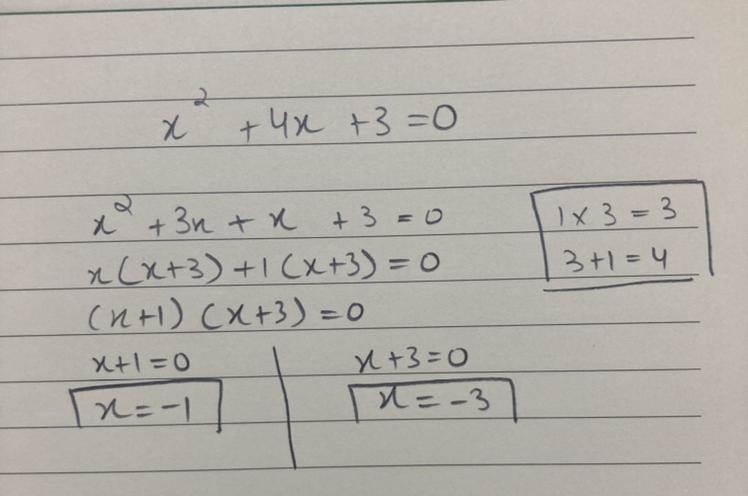 x² + 4x + 3 = 0
x² + 3x + x + 3 = 0
1 × 3 = 3
x(x+3) + 1(x+3) = 0
3 + 1 = 4
(x+1) (x+3) = 0
x+1 = 0
x+3 = 0
x = -1
x = -3